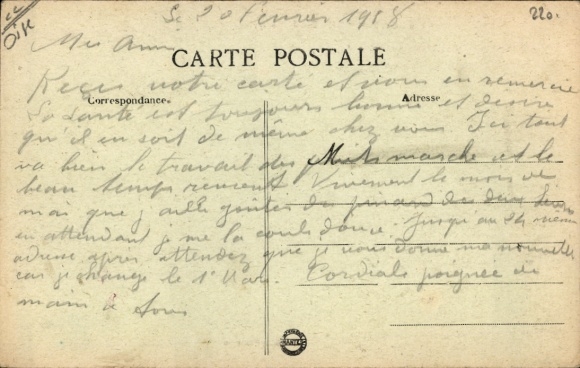 Le 20 Février 1918
220.
Oise
Mes Amis
CARTE POSTALE
Correspondance
Adresse
Reçus votre carte et vous en remercie
La santé est toujours bonne et désire
qu'il en soit de même chez vous Ici tout
va bien le travail des marche et le
beau temps revient Vivement le mois de
mai que j'aille goûter du pinard des deux
en attendant je me la coule douce. Jusqu'au 24 même
adresse après attendez que je vous donne ma nouvelle
car je change le 1er Mars. Cordiale poignée de
main à tous